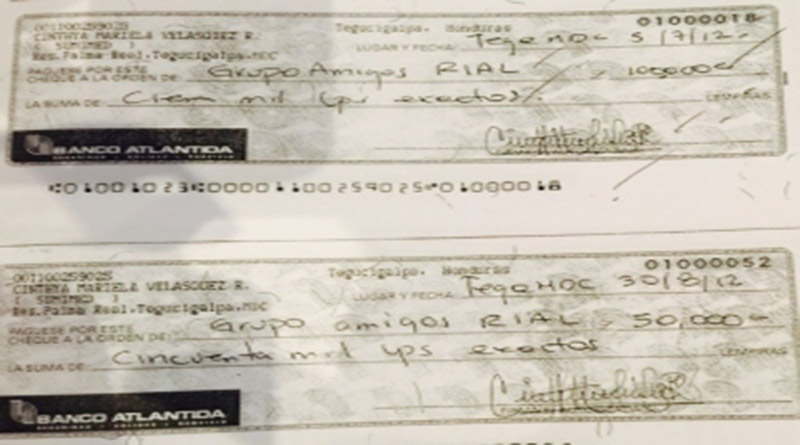 001100259025 Tegucigalpa, Honduras 01000018
CINTHYA MARIELA VELASQUEZ R.
( SUMIMED ) LUGAR Y FECHA: Tega MDC 5/7/12
Res.Palma Real.Tegucigalpa.MDC
PAGUESE POR ESTE
CHEQUE A LA ORDEN DE: Grupo Amigos RIAL
LA SUMA DE: Cien mil Lps exactos LEMPIRAS
BANCO ATLANTIDA
001100259025 Tegucigalpa, Honduras 01000052
CINTHYA MARIELA VELASQUEZ R.
( SUMIMED ) LUGAR Y FECHA: Tega MDC 30/8/12
Res.Palma Real.Tegucigalpa.MDC
PAGUESE POR ESTE
CHEQUE A LA ORDEN DE: Grupo amigos RIAL 50,000
LA SUMA DE: Cincuenta mil Lps exactos LEMPIRAS
BANCO ATLANTIDA